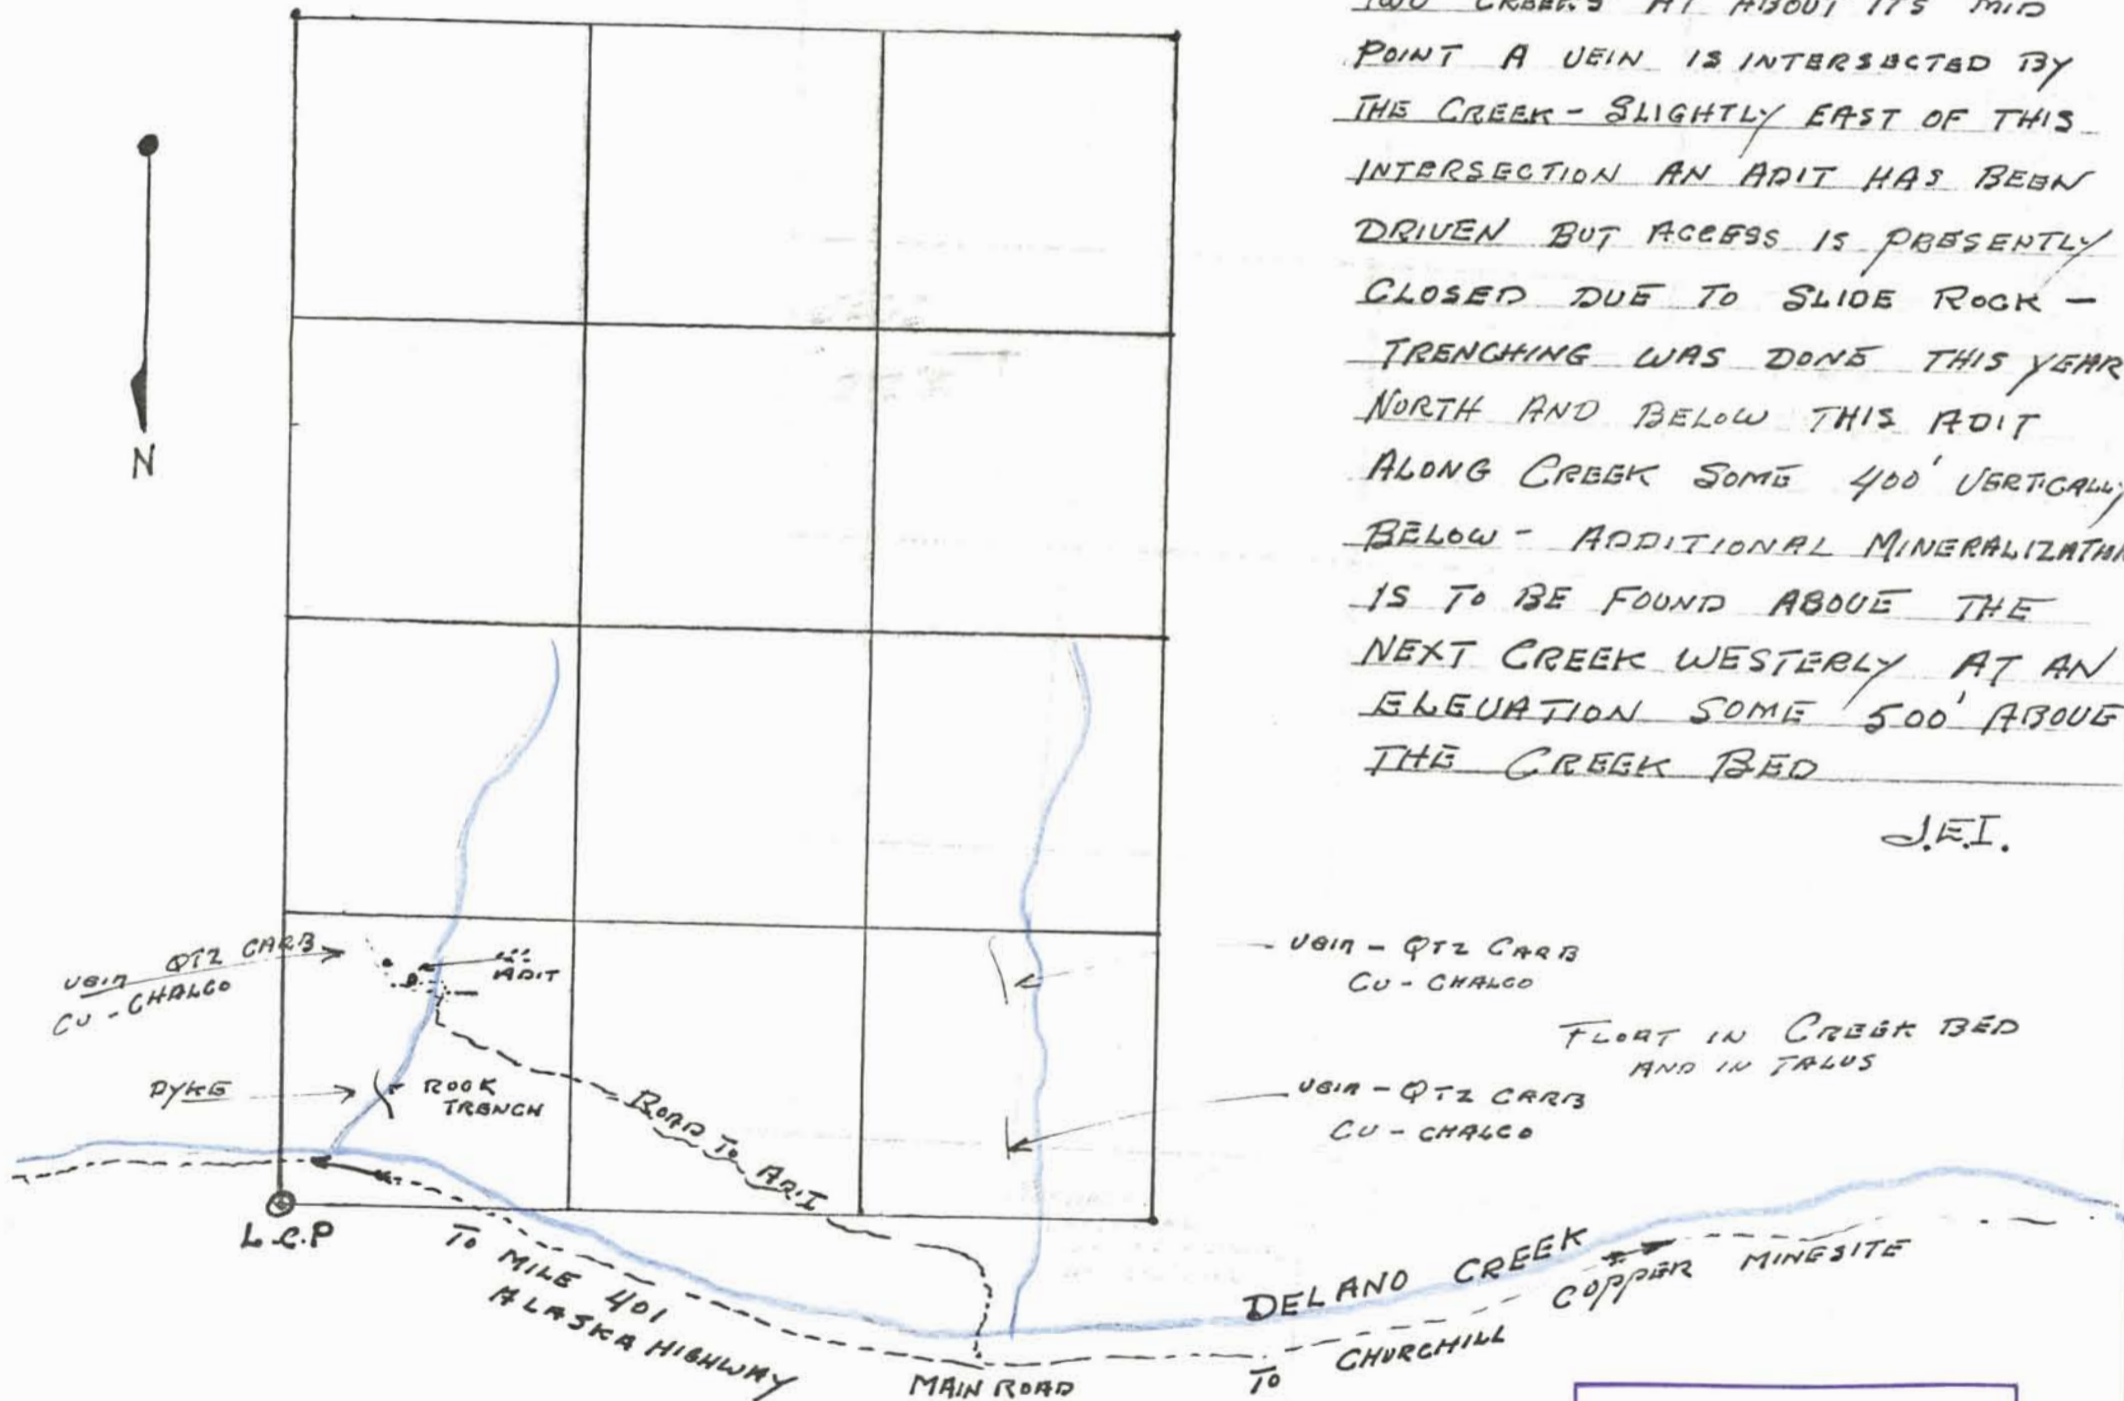 TWO CREEKS AT ABOUT ITS MID
POINT A VEIN IS INTERSECTED BY
THE CREEK - SLIGHTLY EAST OF THIS
INTERSECTION AN ADIT HAS BEEN
DRIVEN BUT ACCESS IS PRESENTLY
CLOSED DUE TO SLIDE ROCK -
TRENCHING WAS DONE THIS YEAR
NORTH AND BELOW THIS ADIT
ALONG CREEK SOME 400' VERTICALLY
BELOW - ADDITIONAL MINERALIZATION
IS TO BE FOUND ABOVE THE
NEXT CREEK WESTERLY AT AN
ELEVATION SOME 500' ABOVE
THE CREEK BED
J.E.I.
N
VEIN QTZ CARB
CU - CHALCO
ADIT
DYKE
ROCK
TRENCH
ROAD TO ADIT
VEIN - QTZ CARB
CU - CHALCO
FLOAT IN CREEK BED
AND IN TALUS
VEIN - QTZ CARB
CU - CHALCO
L.C.P
TO MILE 401
ALASKA HIGHWAY
MAIN ROAD
DELANO CREEK
TO CHURCHILL COPPER MINESITE